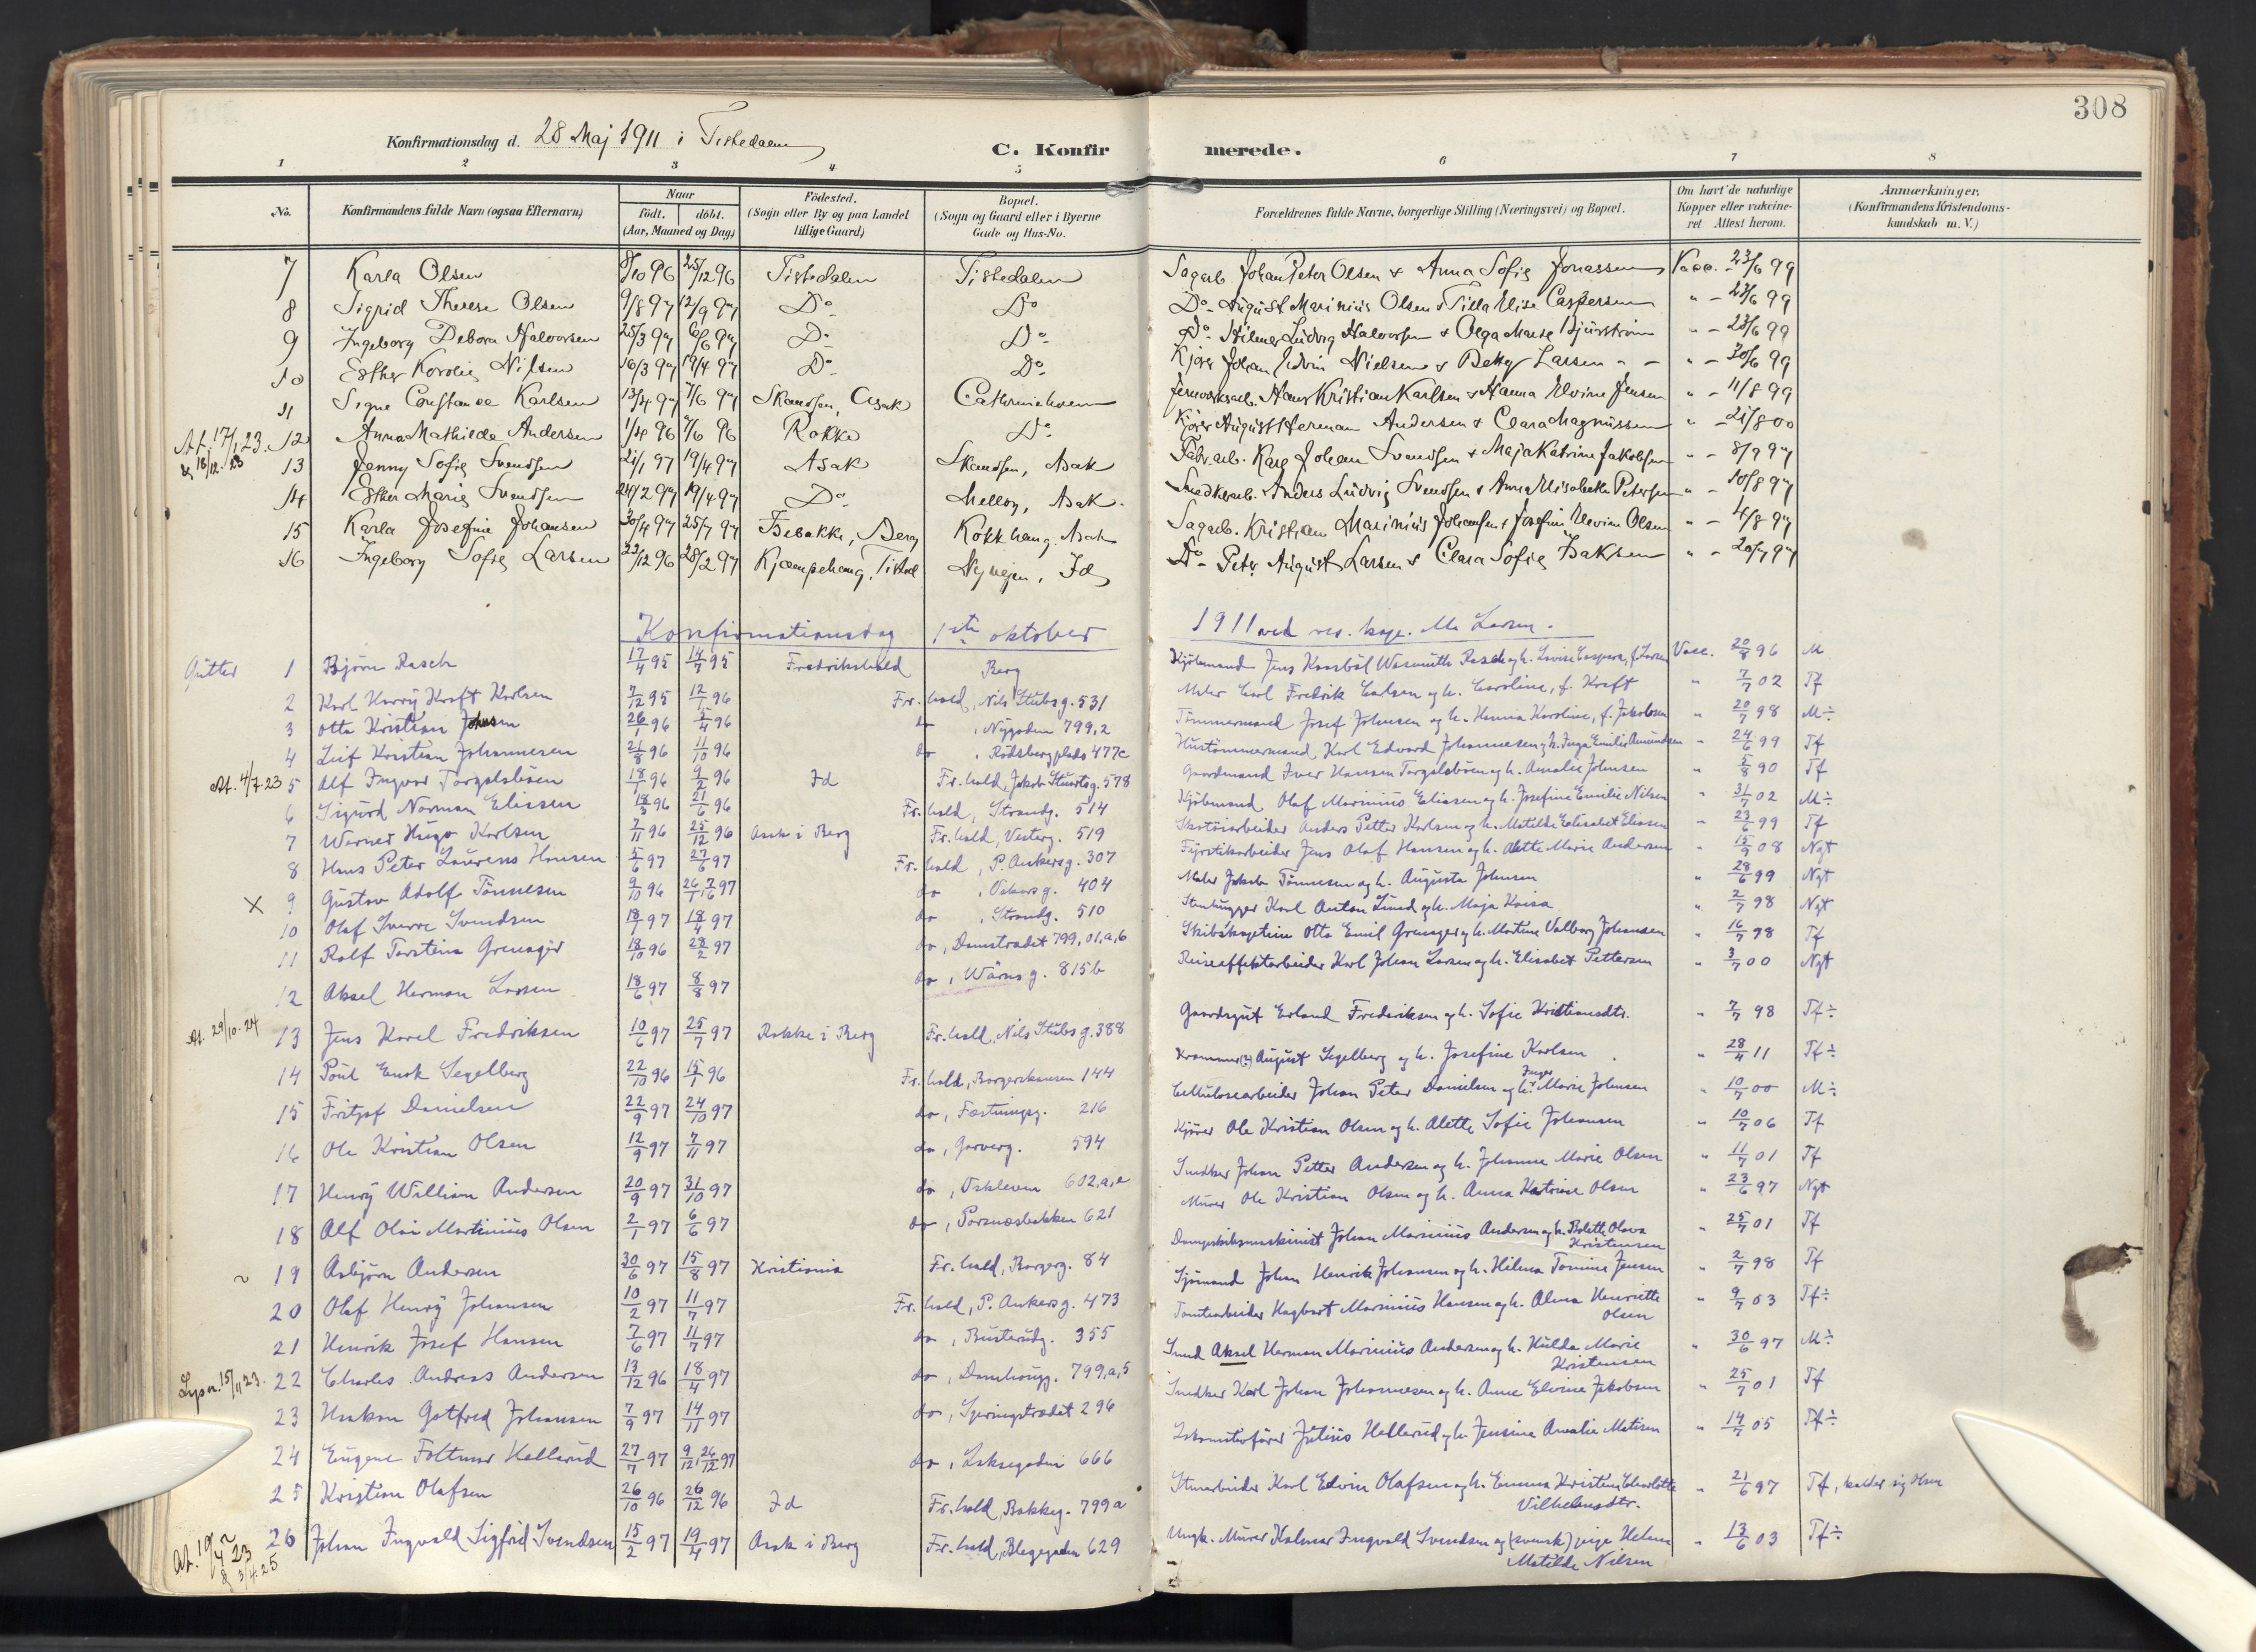 308
Konfirmationsdag d. 28 Maj 1911 i Tistedalen
C. Konfirmerede.
1 2 3 4 5 6 7 8
No. Konfirmandens fulde Navn (ogsaa Efternavn) Naar født. døbt. (Aar, Maaned og Dag) Fødested. (Sogn eller By og paa Landet tillige Gaard) Bopæl. (Sogn og Gaard eller i Byerne Gade og Hus-No. Forældrenes fulde Navne, borgerlige Stilling (Næringsvei) og Bopæl. Om havt de naturlige Kopper eller vakcineret Attest herom. Anmærkninger, (Konfirmandens Kristendomskundskab m. V.)
7 Karla Olsen 8/10 96 25/12 96 Tistedalen Tistedalen Sagarb. Johan Peter Olsen & Anna Sofie Jonassen Vacc. - 23/6 99
8 Sigrid Therese Olsen 9/8 97 12/9 97 Do Do Do August Marinius Olsen & Tilla Elise Caspersen " - 23/6 99
9 Ingeborg Debora Halvorsen 25/3 97 6/6 97 Do Do Do Hilmer Ludvig Halvorsen & Olga Marie Bjurstrøm " - 23/6 99
10 Esther Karolie Nilsen 16/3 97 19/4 97 Do Do Kjører Johan Edvin Nielsen & Betty Larsen " - 30/6 99
11 Signe Constance Karlsen 13/4 97 7/6 97 Skandsen, Asak Cathrineholm Jernverksarb. Hans Kristian Karlsen & Hanna Elvine Jensen " - 11/8 99
At. 17/1 23. & 18/12. 23 12 Anna Mathilde Andersen 1/4 96 7/6 96 Rokke Do Kjører August Herman Andersen & Clara Magnussen " - 21/8 00
13 Jenny Sofie Svendsen 21/1 97 19/4 97 Asak Skandsen, Asak Fabr.arb. Karl Johan Svendsen & Maja Katrine Jakobsen " - 8/9 97
14 Esther Marie Svendsen 24/2 97 19/4 97 Do Melløy, Asak. Snedkerarb. Anders Ludvig Svendsen & Anna Elisabeth Petersen " - 10/8 97
15 Karla Josefine Johansen 30/4 97 25/7 97 Isebakke, Berg Kokkhaug. Asak Sagarb. Kristian Marinius Johansen & Josefine Elvine Olsen " - 4/8 97
16 Ingeborg Sofie Larsen 22/12 96 28/2 97 Kjæmpehaug, Tistedl Nyvejen, Id Do Peter August Larsen & Clara Sofie Isaksen " - 20/7 97
Konfirmationsdag 1ste oktober 1911 ved res. kap. M. Larsen.
Gutter 1 Bjørn Rasch 17/4 95 14/7 95 Fredrikshald Berg Kjøbmand Jens Kaasbøl Wasmuth Rasch og h. Lovise Caspara, f. Larsen Vacc. 20/8 96 M
2 Karl Harry Kraft Karlsen 7/12 95 12/1 96 Fr.hald, Nils Stubs g. 531 Maler Carl Fredrik Carlsen og h. Caroline, f. Kraft " 7/7 02 Tf
3 Otto Kristian Johnsen 26/1 96 5/4 96 do, Nygaden 799,2 Tømmermand Josef Johnsen og h. Hanna Karoline, f. Jakobsen " 20/7 98 M÷
4 Leif Kristian Johannesen 21/8 96 11/10 96 do, Rødsbergplads 477c Hustømmermand Karl Edvard Johannesen og h. Inga Emilie Amundsen " 24/6 99 Tf
At. 4/7 23 5 Alf Ingvar Torgalsbøen 18/1 96 9/2 96 Id Fr.hald, Jakob Stuartsg. 578 Gaardmand Iver Hansen Torgalsbøen og h. Amalie Johnsen " 5/8 90 Tf
6 Sigurd Norman Eliasen 18/3 96 21/6 96 Fr.hald, Strandg. 514 Kjøbmand Olaf Marinius Eliasen og h. Josefine Emilie Nilsen " 31/7 02 M÷
7 Werner Hugo Karlsen 7/11 96 25/12 96 Asak i Berg Fr.hald, Vesterg. 519 Skotøiarbeider Anders Petter Karlsen og h. Matilde Elisabet Eliasen " 23/6 99 Tf
8 Hans Peter Laurens Hansen 5/6 97 27/6 97 Fr.hald, P. Ankersg. 307 Fyrstikarbeider Jens Olaf Hansen og h. Alette Marie Andersen " 15/9 08 Ngt
X 9 Gustav Adolf Tønnesen 9/10 96 26/1, 7/6 97 do, g. 404 Maler Jakob Tønnesen og h. Augusta Johnsen " 28/6 99 Ngt
10 Olaf Sverre Svendsen 18/1 97 18/4 97 do, Strandg. 510 Stenhugger Karl Anton Lund og h. Maja Kaisa " 2/7 98 Ngt
11 Rolf Torstein Grensgør 18/10 96 28/2 97 do, Damstrædet 799,01,a,6 Skibskaptein Otto Emil Grensger og h. Martine Valborg Johansen " 16/7 98 Tf
12 Aksel Herman Larsen 18/6 97 8/8 97 do, Wærns g. 815b Reiseeffektarbeider Karl Johan Larsen og h. Elisabet Pettersen " 3/7 00 Ngt
At. 29/10-24 13 Jens Karel Fredriksen 10/6 97 25/7 97 Rokke i Berg Fr.hald, Nils Stubs g. 388 Gaardsgut Erland Frederiksen og h. Sofie Kristiansdtr. " 7/7 98 Tf÷
14 Poul Enok Segelberg 22/10 96 15/1 96 Fr.hald, Borgerskansen 144 Krammer(?) August Segelberg og h. Josefine Karlsen " 28/4 11 Tf÷
15 Fritjof Danielsen 22/9 97 24/10 97 do, Fæstningsg. 216 Cellulosearbeider Johan Peter Danielsen og h. Inger Marie Johnsen " 10/7 00 M÷
16 Ole Kristian Olsen 12/9 97 7/11 97 do, Garverg. 594 Kjører Ole Kristian Olsen og h. Alette Sofie Johansen " 10/7 06 Tf
17 Henry William Andersen 20/9 97 31/10 97 do, Oskleven 602,a,e Snedker Johan Petter Andersen og h. Johanne Marie Olsen " 11/7 01 Tf
18 Alf Olai Martinius Olsen 2/1 97 6/6 97 do, Porsnæsbakken 621 Murer Ole Kristian Olsen og h. Anna Katrine Olsen " 23/6 97 Ngt
~ 19 Asbjørn Andersen 30/6 97 15/8 97 Kristiania Fr.hald, Borgerg. 84 Dampskibsmaskinist Johan Marinius Andersen og h. Bolette Olava Kristensen " 25/7 01 Tf
20 Olaf Henry Johansen 10/2 97 11/7 97 Fr.hald, P. Ankersg. 473 Sjømand Johan Henrik Johansen og h. Hilma Tomine Jensen " 2/7 98 Tf
21 Henrik Josef Hansen 7/6 97 11/7 97 do, Busterudg. 355 Tomtearbeider Hagbart Marinius Hansen og h. Alma Henriette Olsen " 9/7 03 Tf÷
Lysn. 15/11 23. 22 Charles Andreas Andersen 13/12 96 18/4 97 do, Damhaugg. 799,a,5 Smed Aksel Herman Marinius Andersen og h. Hulda Marie Kristensen " 30/6 97 M÷
23 Haakon Gotfred Johansen 7/9 97 14/11 97 do, Speiringstrædet 296 Snedker Karl Johan Johannesen og h. Anne Elvine Jakobsen " 25/7 01 Tf
24 Eugene Foltmar Hellerud 27/7 97 9/12, 26/12 97 do, Laksegaden 666 Lokomotivfører Julius Hellerud og h. Jensine Amalie Matisen " 14/7 05 Tf÷
25 Kristian Olafsen 26/10 96 26/12 96 Id Fr.hald, Bakkeg. 799a Stenarbeider Karl Edvin Olafsen og h. Emma Kristine Charlotte Vilhelmsdtr. " 21/6 97 Tf, kalder sig Olsen
At. 19/4 23 & 3/4.25 26 Johan Ingvald Sigfrid Svendsen 15/2 97 19/4 97 Asak i Berg Fr.hald, Blegegaden 629 Ungk. Murer Kalmar Ingvald Svendsen og (svensk) pige Helene Matilde Nilsen " 13/6 03 Tf÷